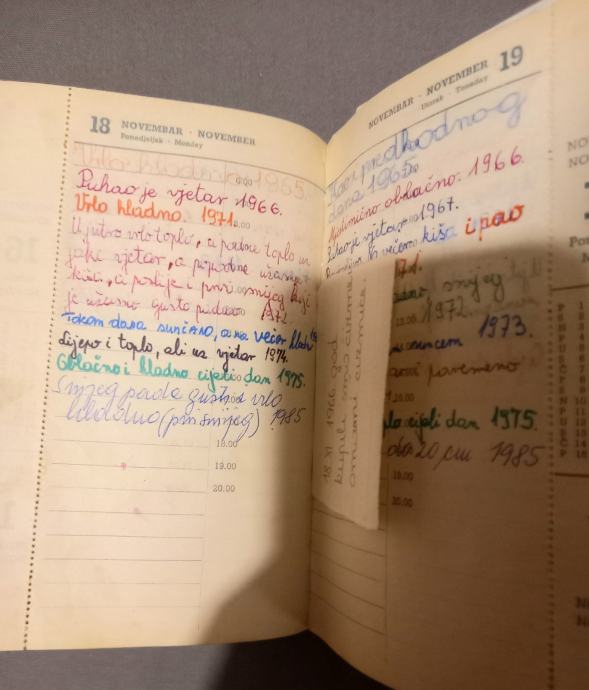 18 NOVEMBAR · NOVEMBER
Ponedjeljak · Monday
Vrlo hladno 1965.
Puhao je vjetar 1966.
Vrlo hladno. 1971.
U jutro vrlo toplo, a podne toplo uz
jaki vjetar, a popodne užasna
kiša, a poslije i prvi snijeg koji
je užasno gusto padao 1972
Tokom dana sunčano, a na večer hladno
Lijepo i toplo, ali uz vjetar 1974.
Oblačno i hladno cijeli dan 1975.
Snijeg pada gusto vrlo
hladno (prvi snijeg) 1985
18.00
19.00
20.00
NOVEMBAR · NOVEMBER 19
Utorak · Tuesday
Kao predhodnog
dana 1965.
Djelomično oblačno. 1966.
Puhao je vjetar 1967.
večero kiša i pao
71.
snijeg
1972
suncem 1973.
povremeno
cijeli dan 1975.
do 20 cm 1985
19.00
20.00
18. XI. 1966 god.
kupili smo crvene